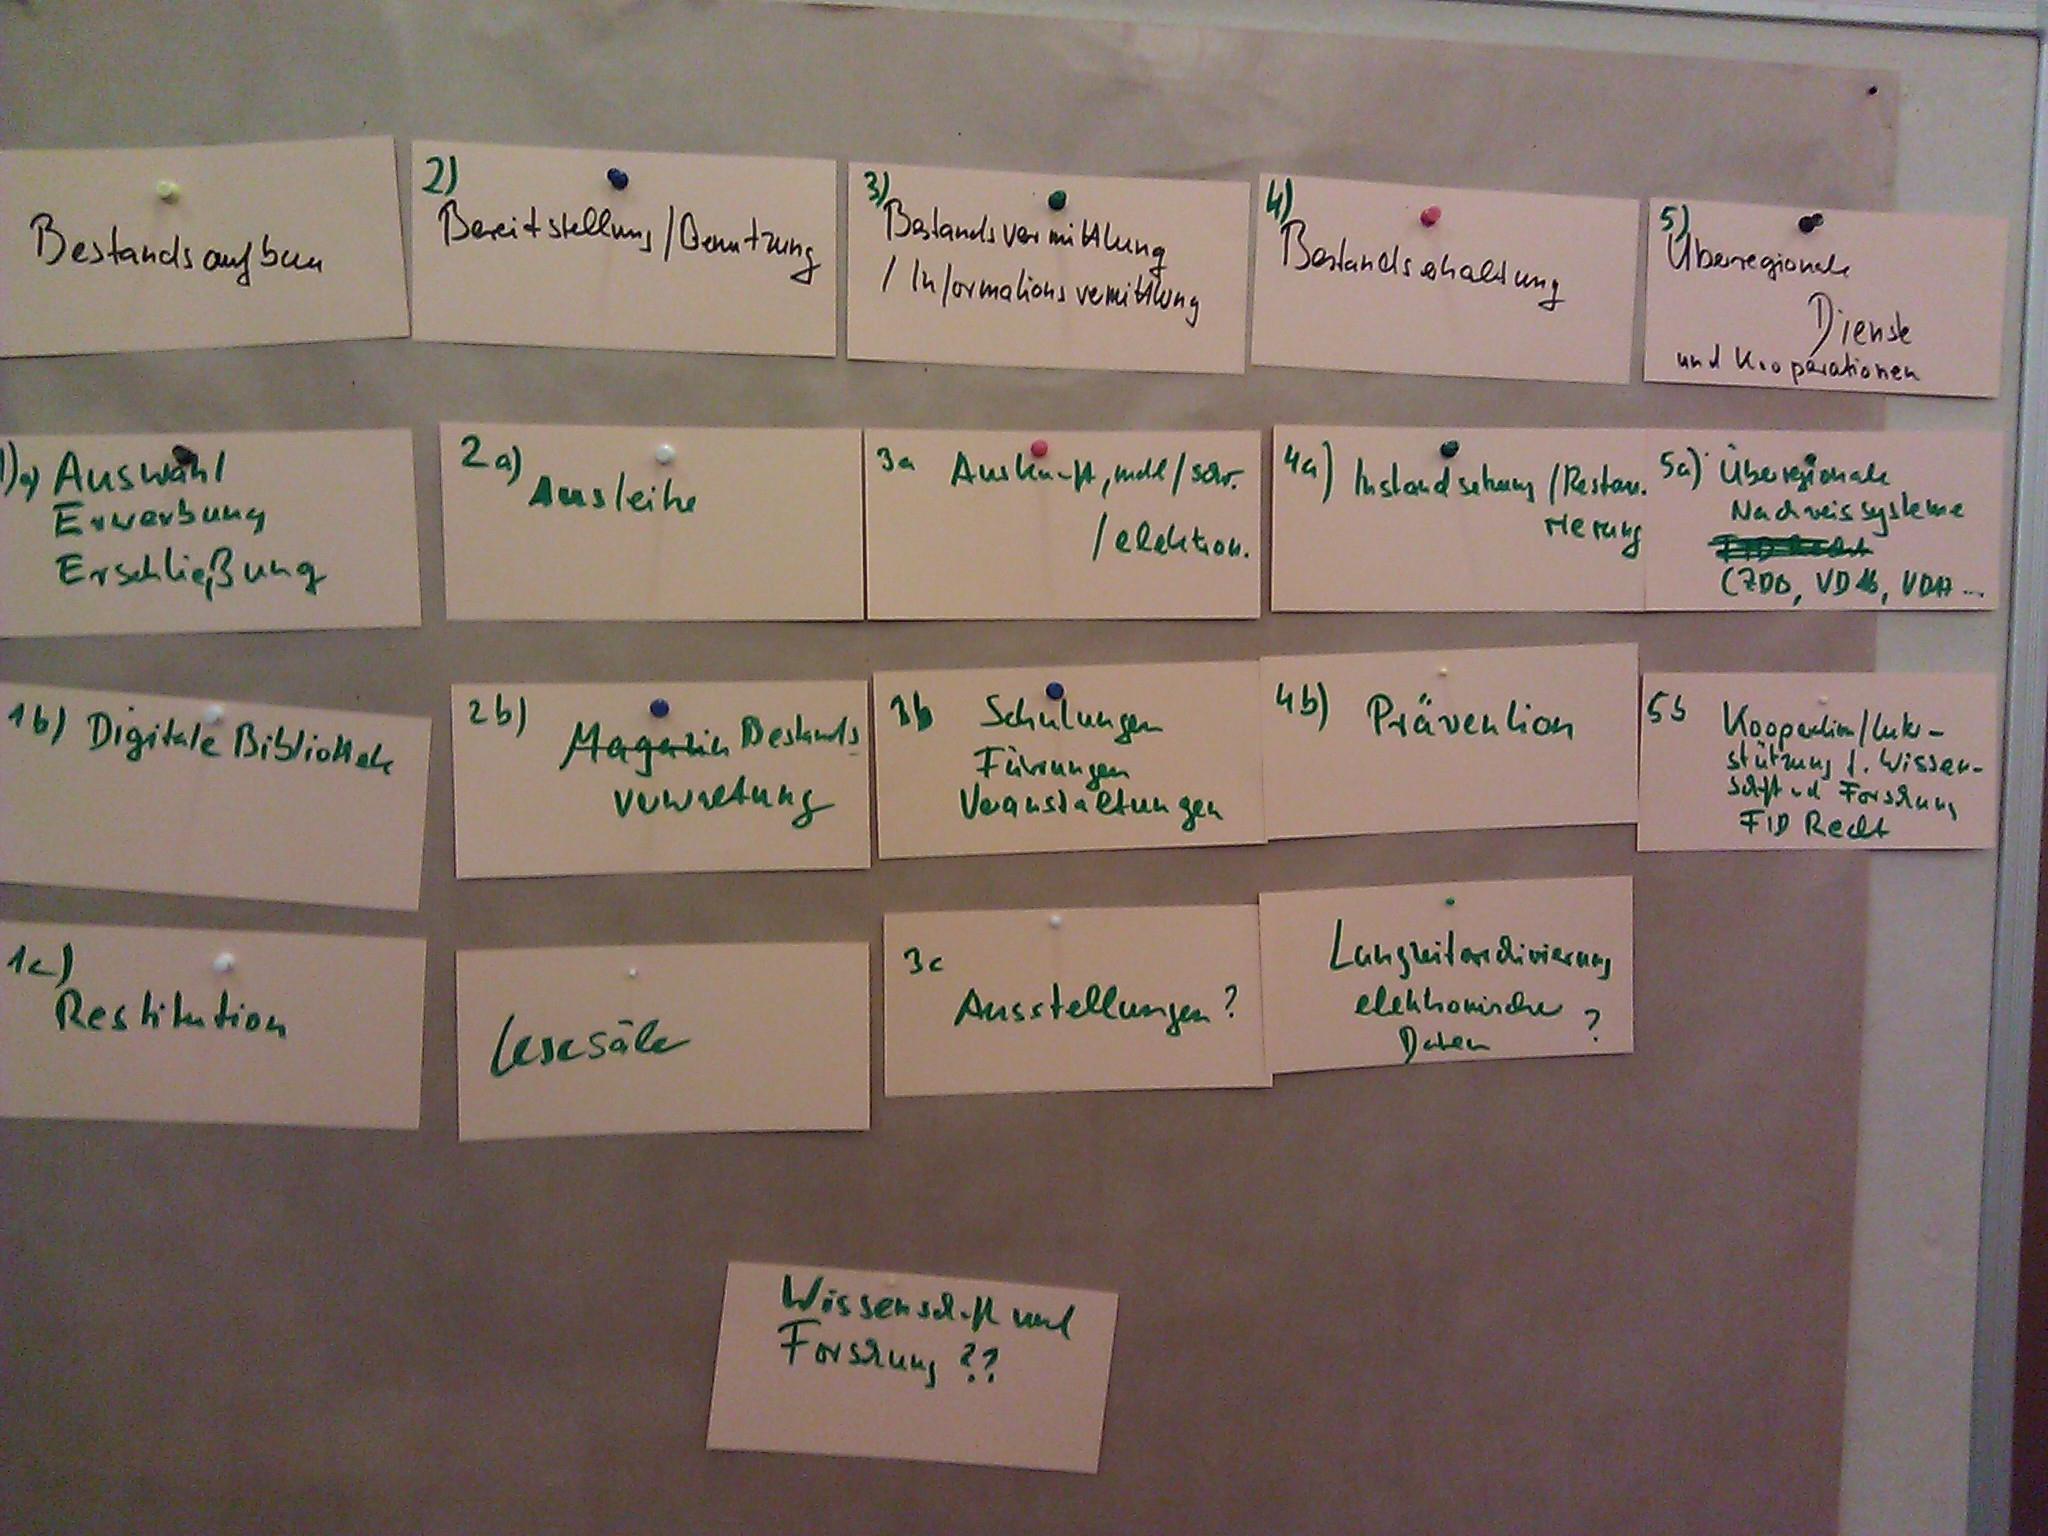 Bestandsaufbau
2)
Bereitstellung/Benutzung
3)
Bestandsvermittlung
/ Informationsvermittlung
4)
Bestandserhaltung
5)
Überregionale
Dienste
und Kooperationen
1)a) Auswahl
Erwerbung
Erschließung
2a)
Ausleihe
3a Auskunft, mdl/schr.
/elektron.
4a) Instandsetzung/Restau.
rierung
5a) Überregionale
Nachweissysteme
FID Recht
(ZDB, VD16, VD17 ...
1b) Digitale Bibliothek
2b)
Magazin Bestands
verwaltung
3b Schulungen
Führungen
Veranstaltungen
4b) Prävention
5b Kooperation/Unter-
stützung f. Wissen-
schft und Forschung
FID Recht
1c)
Restitution
Lesesäle
3c
Ausstellungen?
Langzeitarchivierung
elektronischer
Daten ?
Wissenschaft und
Forschung ??